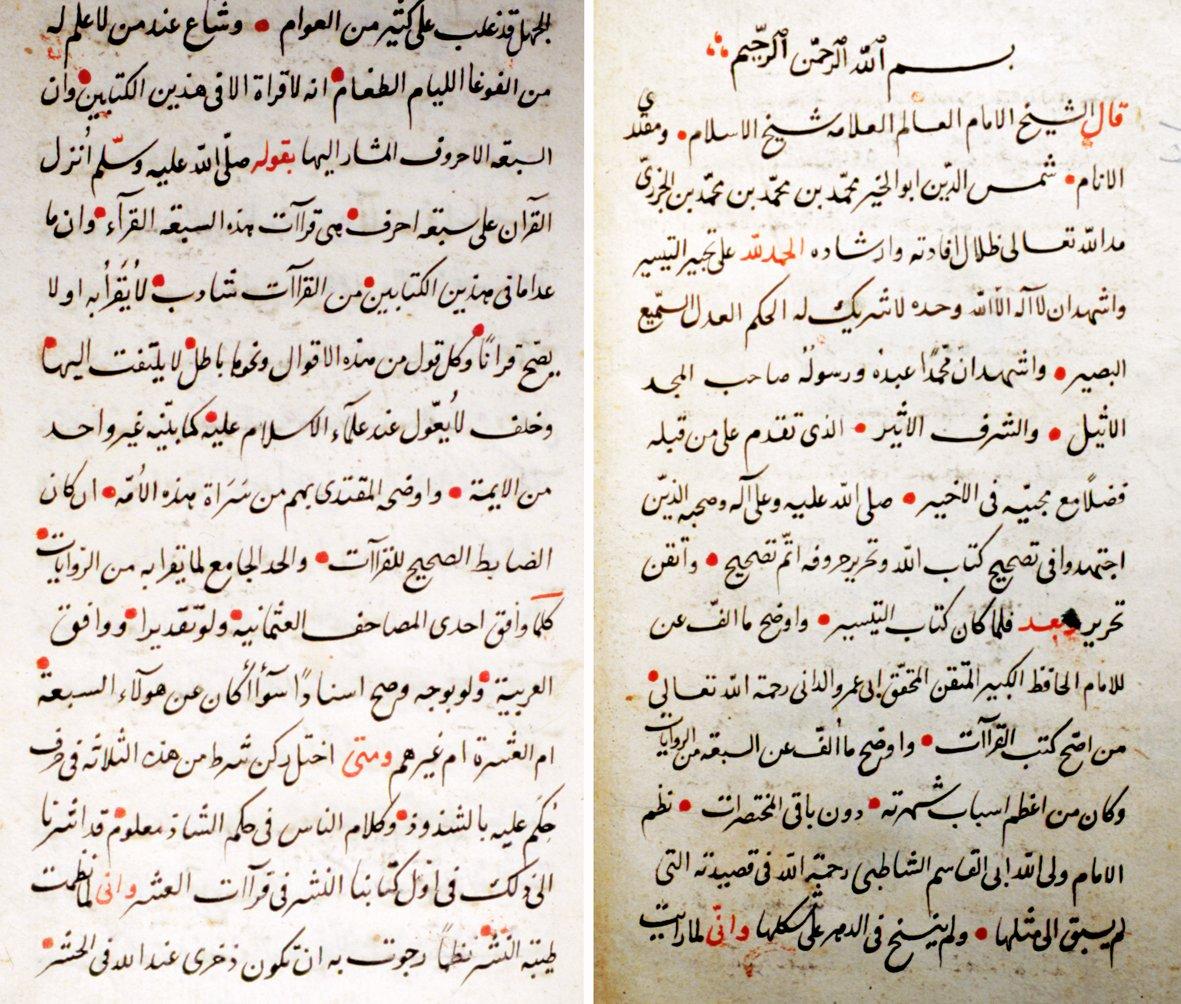 بسم الله الرحمن الرحيم
قال الشيخ الامام العالم العلامه شيخ الاسلام • ومقتدى
الانام • شمس الدين ابو الخير محمّد بن محمّد بن محمّد بن الجزرىّ
مد الله تعالى ظلال افادته وارشاده الحمد لله على تحبير التيسير
واشهد ان لا اله الا الله وحده لا شريك له الحكم العدل السّميع
البصير • واشهد ان محمّدًا عبدُه ورسولُه صاحب المجد
الاثيل • والشرف الاثير • الذى تقدم على من قبله
فضلًا مع مجيّه فى الاخير • صلى الله عليه وعلى آله وصحبه الذين
اجتهدوا فى تصحيح كتاب الله وتحرير حروفه اتمّ تصحيح • واتقن
تحرير وبعد فلما كان كتاب التيسير • واوضح ما الف عن
للامام الحافظ الكبير المتقن المحقق ابى عمرو الدانى رحمة الله تعالى •
من اصّح كتب القراآت • واوضح ما الف عن السبعه من الروايات
وكان من اعظم اسباب شهرته • دون باقى المختصرات • نظم
الامام ولى الله ابى القاسم الشاطبى رحمة الله فى قصيدته التى
لم يسبق الى مثلها • ولم ينسخ فى الدهر على شكلها وانّى لما رايت
الجهل قد غلب على كثير من العوام • وشاع عند من لا علم له
من الغوغا الليام الطغام • انه لا قراة الا فى هذين الكتابين • وان
السبعه الاحروف المشار اليها بقوله صلّى الله عليه وسلّم اُنزل
القرآن على سبعه احرف • هى قراآت هذه السبعه القرآء • وان ما
عدا ما فى هذين الكتابين • من القراآت شاذ • لا يُقرَأ به او لا
يصّح قرانًا • وكل قول من هذه الاقوال ونحوها باطل • لا يلتفت اليها •
وخلف لا يُعّول عند علمآء الاسلام عليه • كما بيّنه غير واحد
من الايمة • واوضحه المقتدى بهم من سَرَاة هذه الاُمّه • ان كان
الضابط الصحيح للقراآت • والحد الجامع لما يقرا به من الروايات •
كلّما وافق احدى المصاحف العثمانيه • ولو تقديرا • ووافق
العربية • ولو بوجه وصح اسنادًا سوأ أكان عن هولآء السبعة •
ام العشرة ام غيرهم ومتى اختل ركن شرط من هذه الثلاثه فى حرف
حُكَم عليه بالشذوذ • وكلام الناس فى حكم الشاذ معلوم • قد اشرنا
الى ذلك فى اوّل كتابنا النشر فى قراآت العشر وانى لما نظمت
طيّبة النشر نظمًا رجوت به ان تكون ذخرى عند الله فى الحشر •